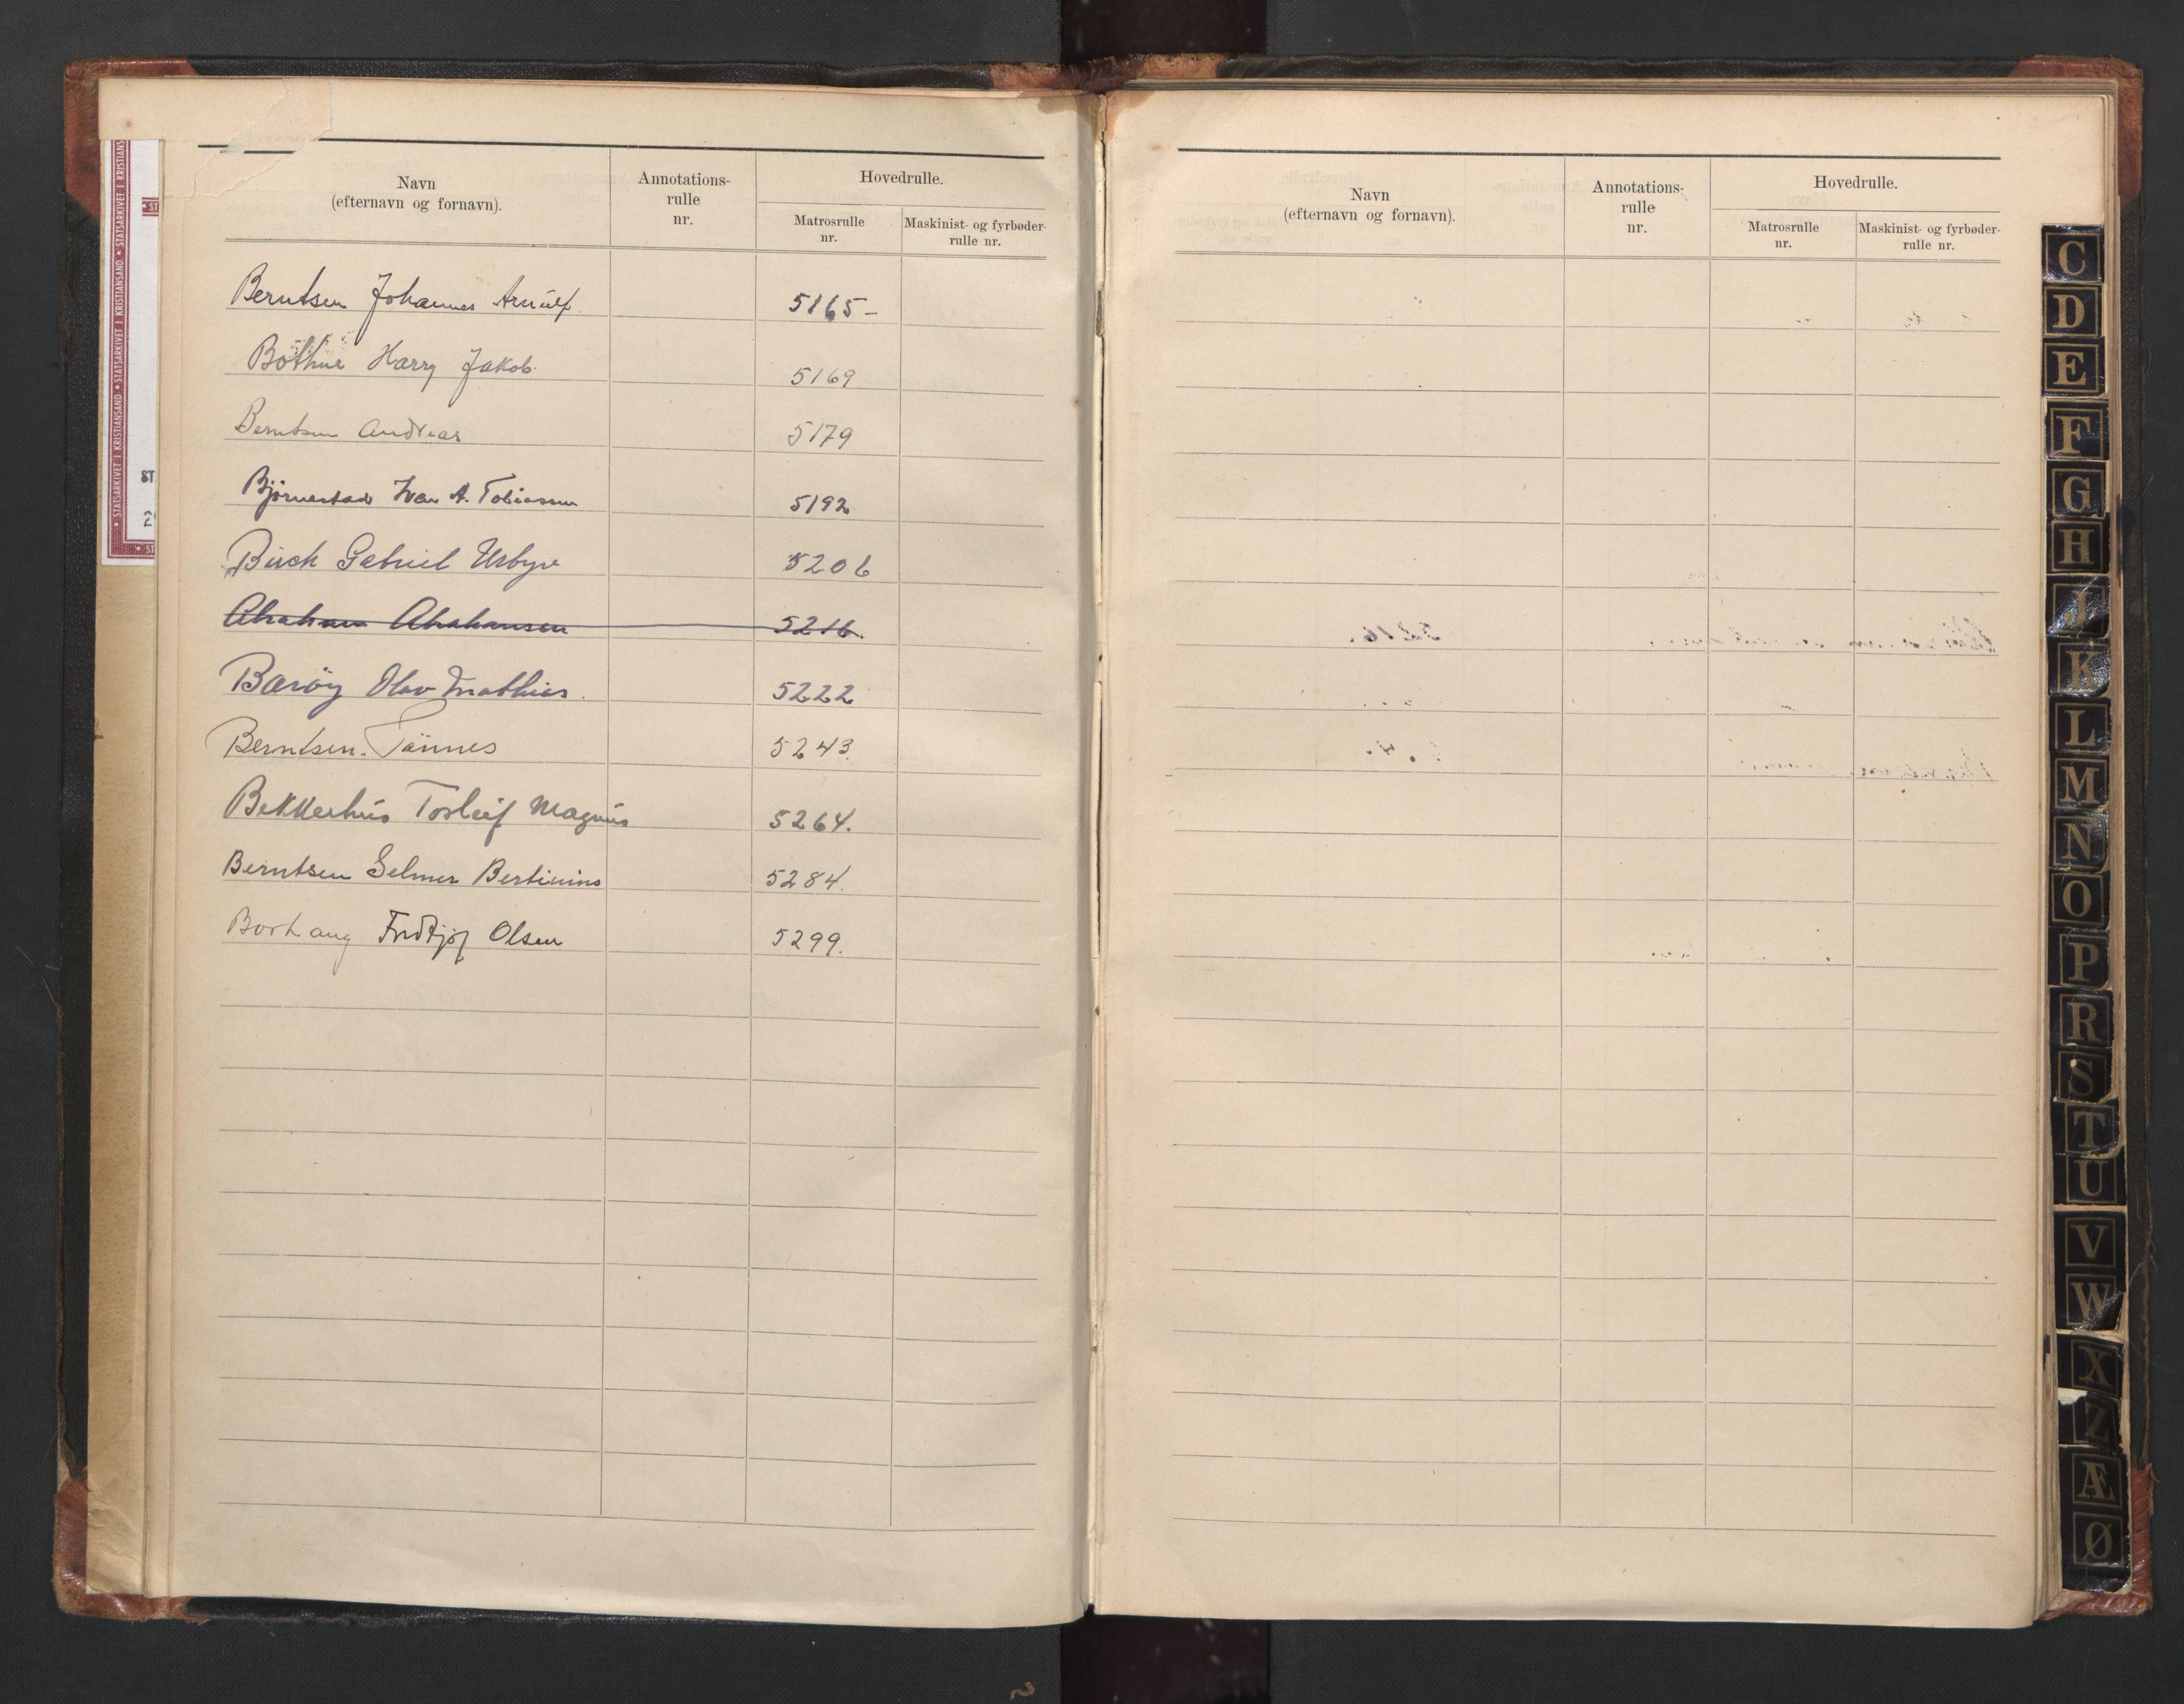 Navn
(efternavn og fornavn).
Annotations-
rulle
nr.
Hovedrulle.
Matrosrulle
nr.
Maskinist- og fyrbøder-
rulle nr.
Berntsen Johannes Arnulf. 5165 –
Bothne Harry Jakob. 5169
Berntsen Andreas 5179
Bjørnestad Ivar A. Tobiassen 5192
Birch Gabriel Usbye 5206
Abraham Abrahamsen 5216.
Barøy Olav Mathias. 5222
Berntsen. Tønnes 5243.
Bekkerhus Torleif Magnus 5264.
Berntsen Selmer Bertinius 5284.
Borhaug Fridtjof Olsen 5299.
Navn
(efternavn og fornavn).
Annotations-
rulle
nr.
Hovedrulle.
Matrosrulle
nr.
Maskinist- og fyrbøder-
rulle nr.
C
D
E
F
G
H
I
K
L
M
N
O
P
R
S
T
U
V
W
X
Z
Æ
Ø
STATSARKIVET I KRISTIANSAND • STATSARKIVET I KRISTIANSAND • STATSARKIVET I KRISTIANS